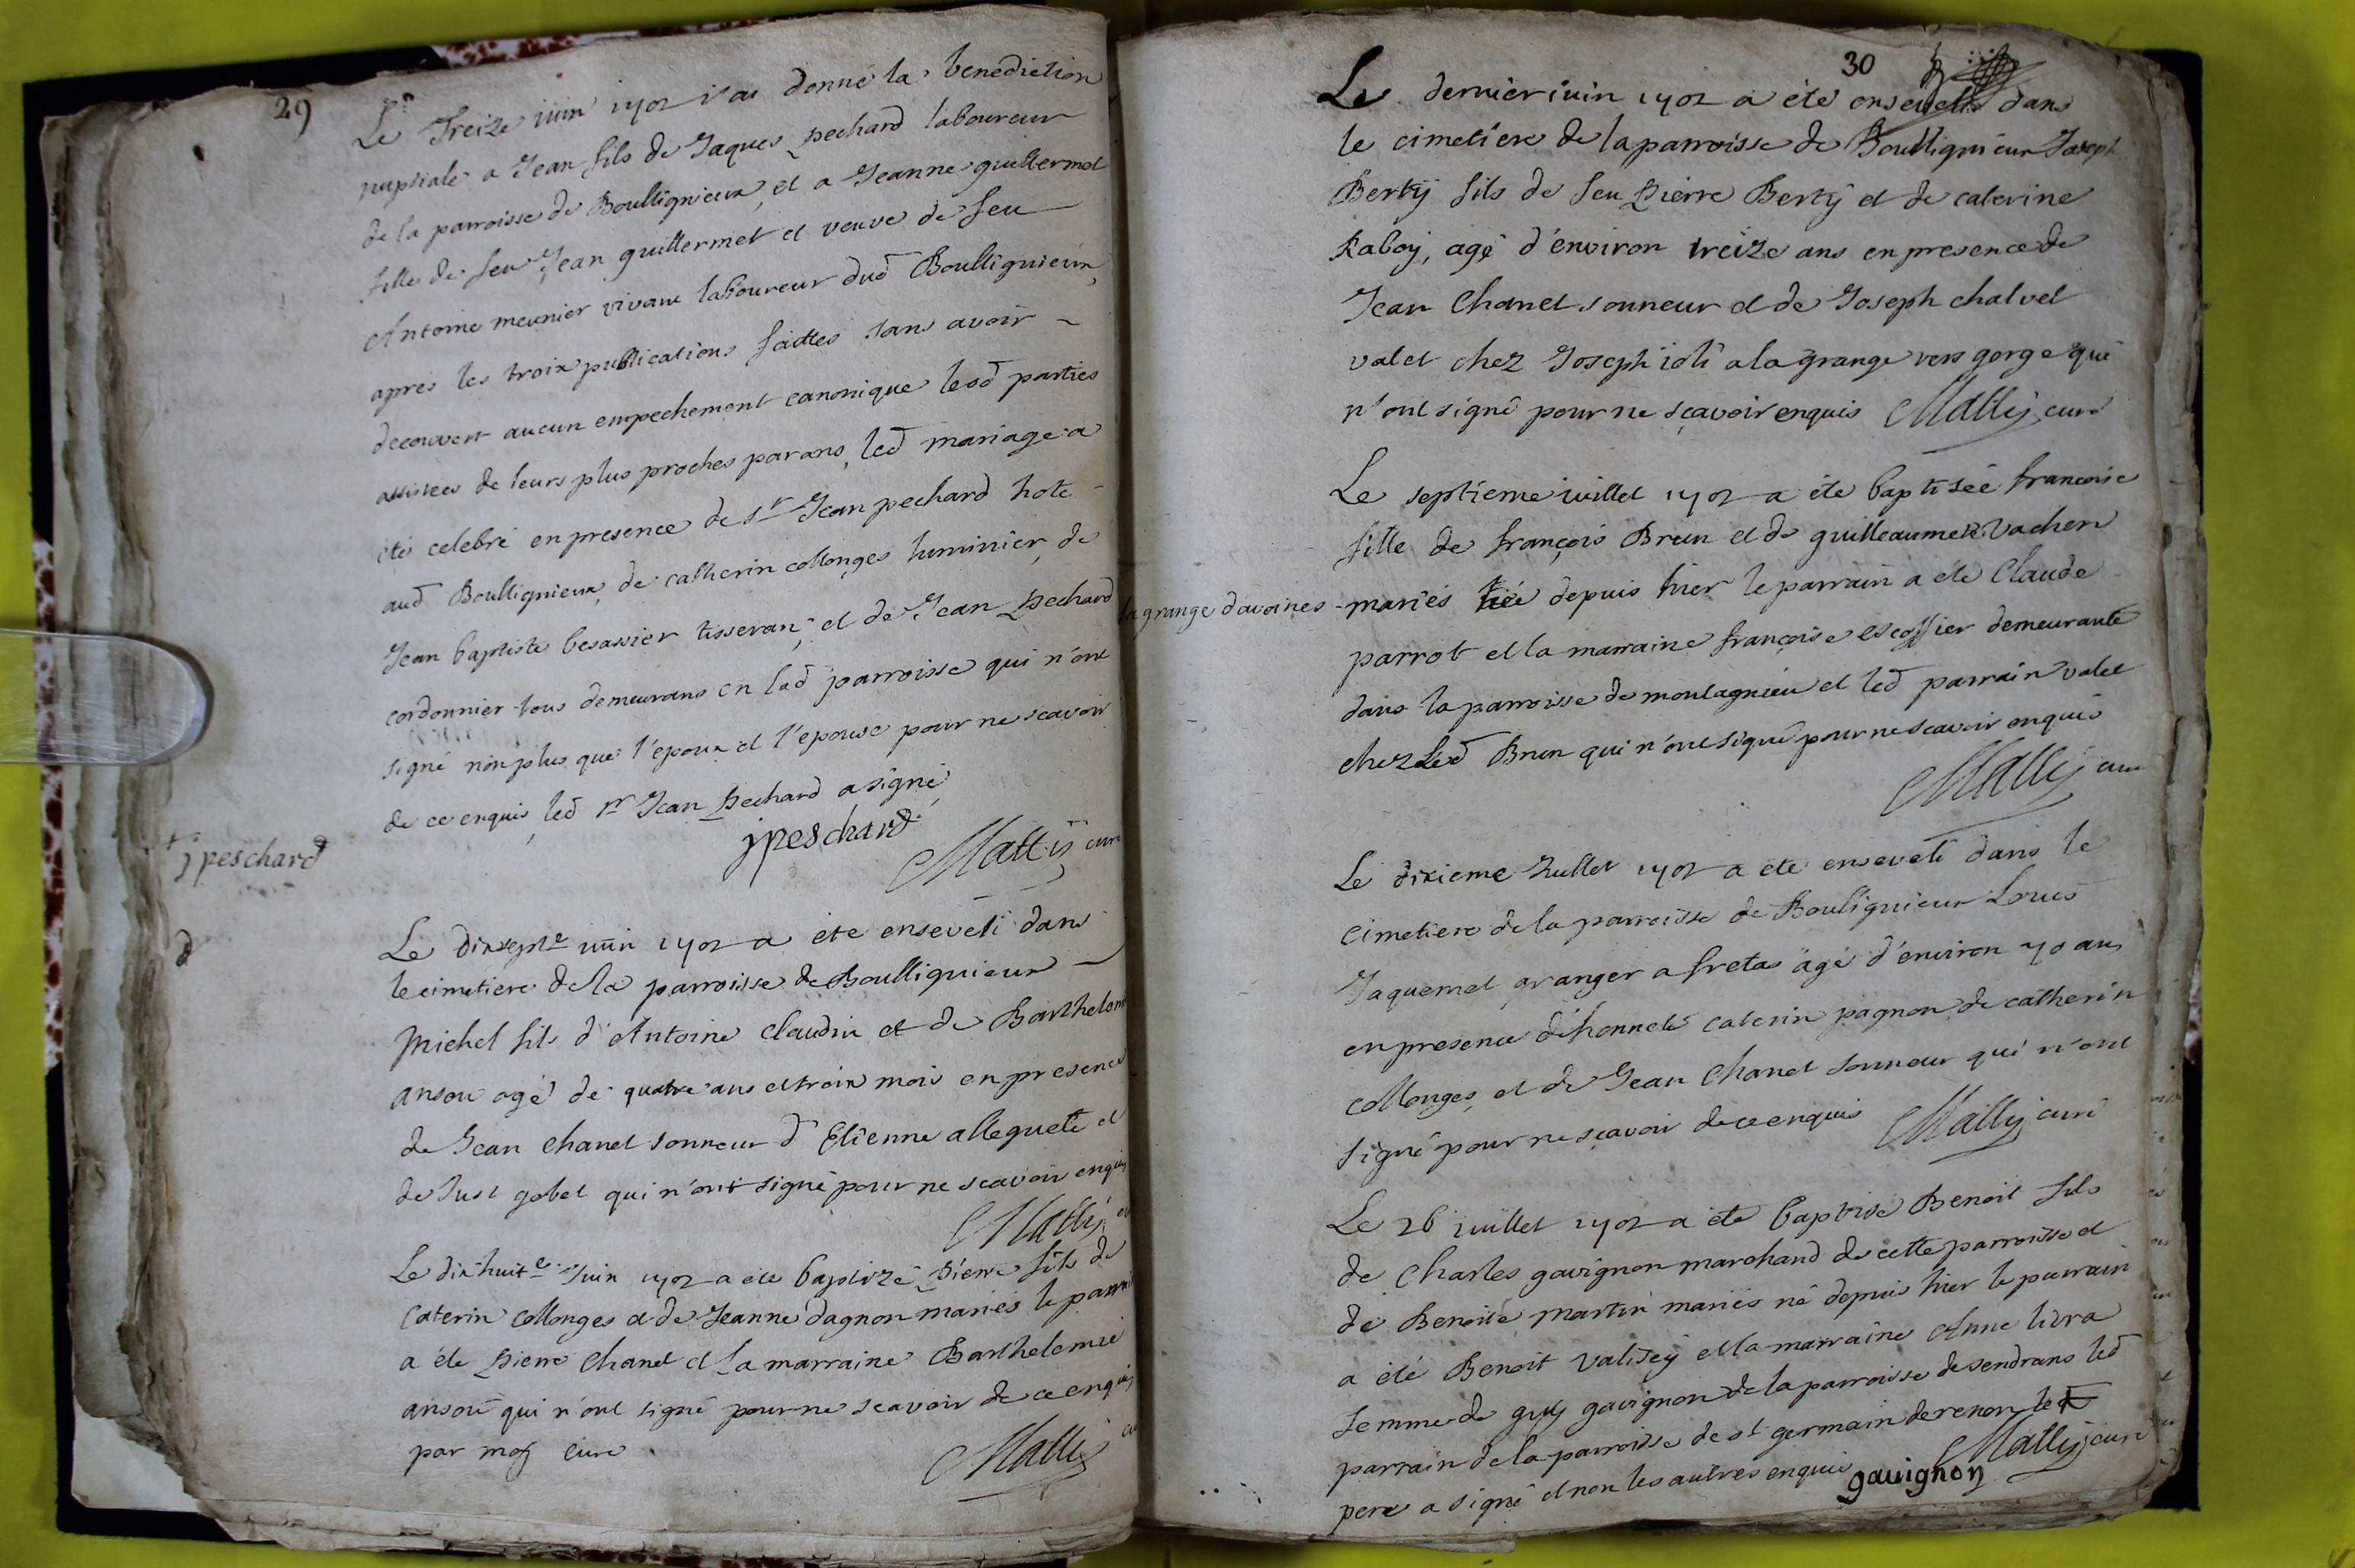 29
Le Treize iuin 1702 i'ai donné la benediction
nuptiale a Jean fils de Jaques pechard laboureur
de la parroisse de Boullignieux, et a Jeanne guillermet
fille de feu Jean guillermet et veuve de feu
Antoine meunier vivant laboureur dud Boullignieux,
apres les troix publications faittes sans avoir
decouvert aucun empechement canonique lesd parties
assistees de leurs plus proches parans, led mariage a
été celebré en presence de sr Jean pechard hote
aud Boullignieux, de catherin collonges luminier, de
Jean baptiste besassier tisseran, et de Jean pechard
cordonnier tous demeurans en lad parroisse qui n'ont
signé non plus que l'epoux et l'epouse pour ne scavoir
de ce enquis, led sr Jean pechard a signé
jpeschard
Mally curé
+ jpeschard
d
Le dixsepte iuin 1702 a été enseveli dans
le cimetiere de la parroisse de Boullignieux
Michel fils d'Antoine Claudin et de Barthelem
ansou agé de quatre ans et troix mois en presence
de Jean Chanel sonneur d'Etienne allequete et
de Just gobet qui n'ont signé pour ne scavoir enquis
Mally cu
Le dixhuite Juin 1702 a été baptizé pierre fils de
Caterin Collonges et de Jeanne dagnon mariés le parrain
a été pierre Chanel et la marraine Barthelemie
ansou qui n'ont signé pour ne scavoir de ce enquis
par moy curé
Mally cu
30
Le dernier iuin 1702 a été enseveli dans
le cimetiere de la parroisse de Boullignieux Joseph
Berty fils de feu pierre Berty et de caterine
Raboy, agé d'environ treize ans en presence de
Jean Chanel sonneur et de Joseph chalvet
valet chez Joseph ioli a la grange vers gorge qui
n'ont signé pour ne sçavoir enquis Mally curé
Le septieme iuillet 1702 a été baptisée francoise
fille de françois Brun et de guilleaumeze Vacher
la grange davaines - mariés née depuis hier le parrain a été Claude
parrot et la marraine françoise escoffier demeurante
dans la parroisse de montagnieu et led parrain valet
chez led Brun qui n'ont signé pour ne scavoir enquis
Mally curé
Le dixieme Juillet 1702 a été enseveli dans le
cimetiere de la parroisse de Boulignieux Louis
Jaquemet granger a fretas agé d'environ 70 ans
en presence d'honnete caterin pagnon de catherin
collonges, et de Jean Chanel sonneur qui n'ont
signé pour ne sçavoir de ce enquis Mally curé
Le 26 iuillet 1702 a été baptise Benoit fils
de Charles gavignon marchand de cette parroisse et
de Benoite martin mariés né depuis hier le parrain
a été Benoit Valisey et la marraine Anne livra
femme de guy gavignon de la parroisse de sendrans led
parrain de la parroisse de st germain de renon, led
pere a signé et non les autres enquis Mally curé
gauignon